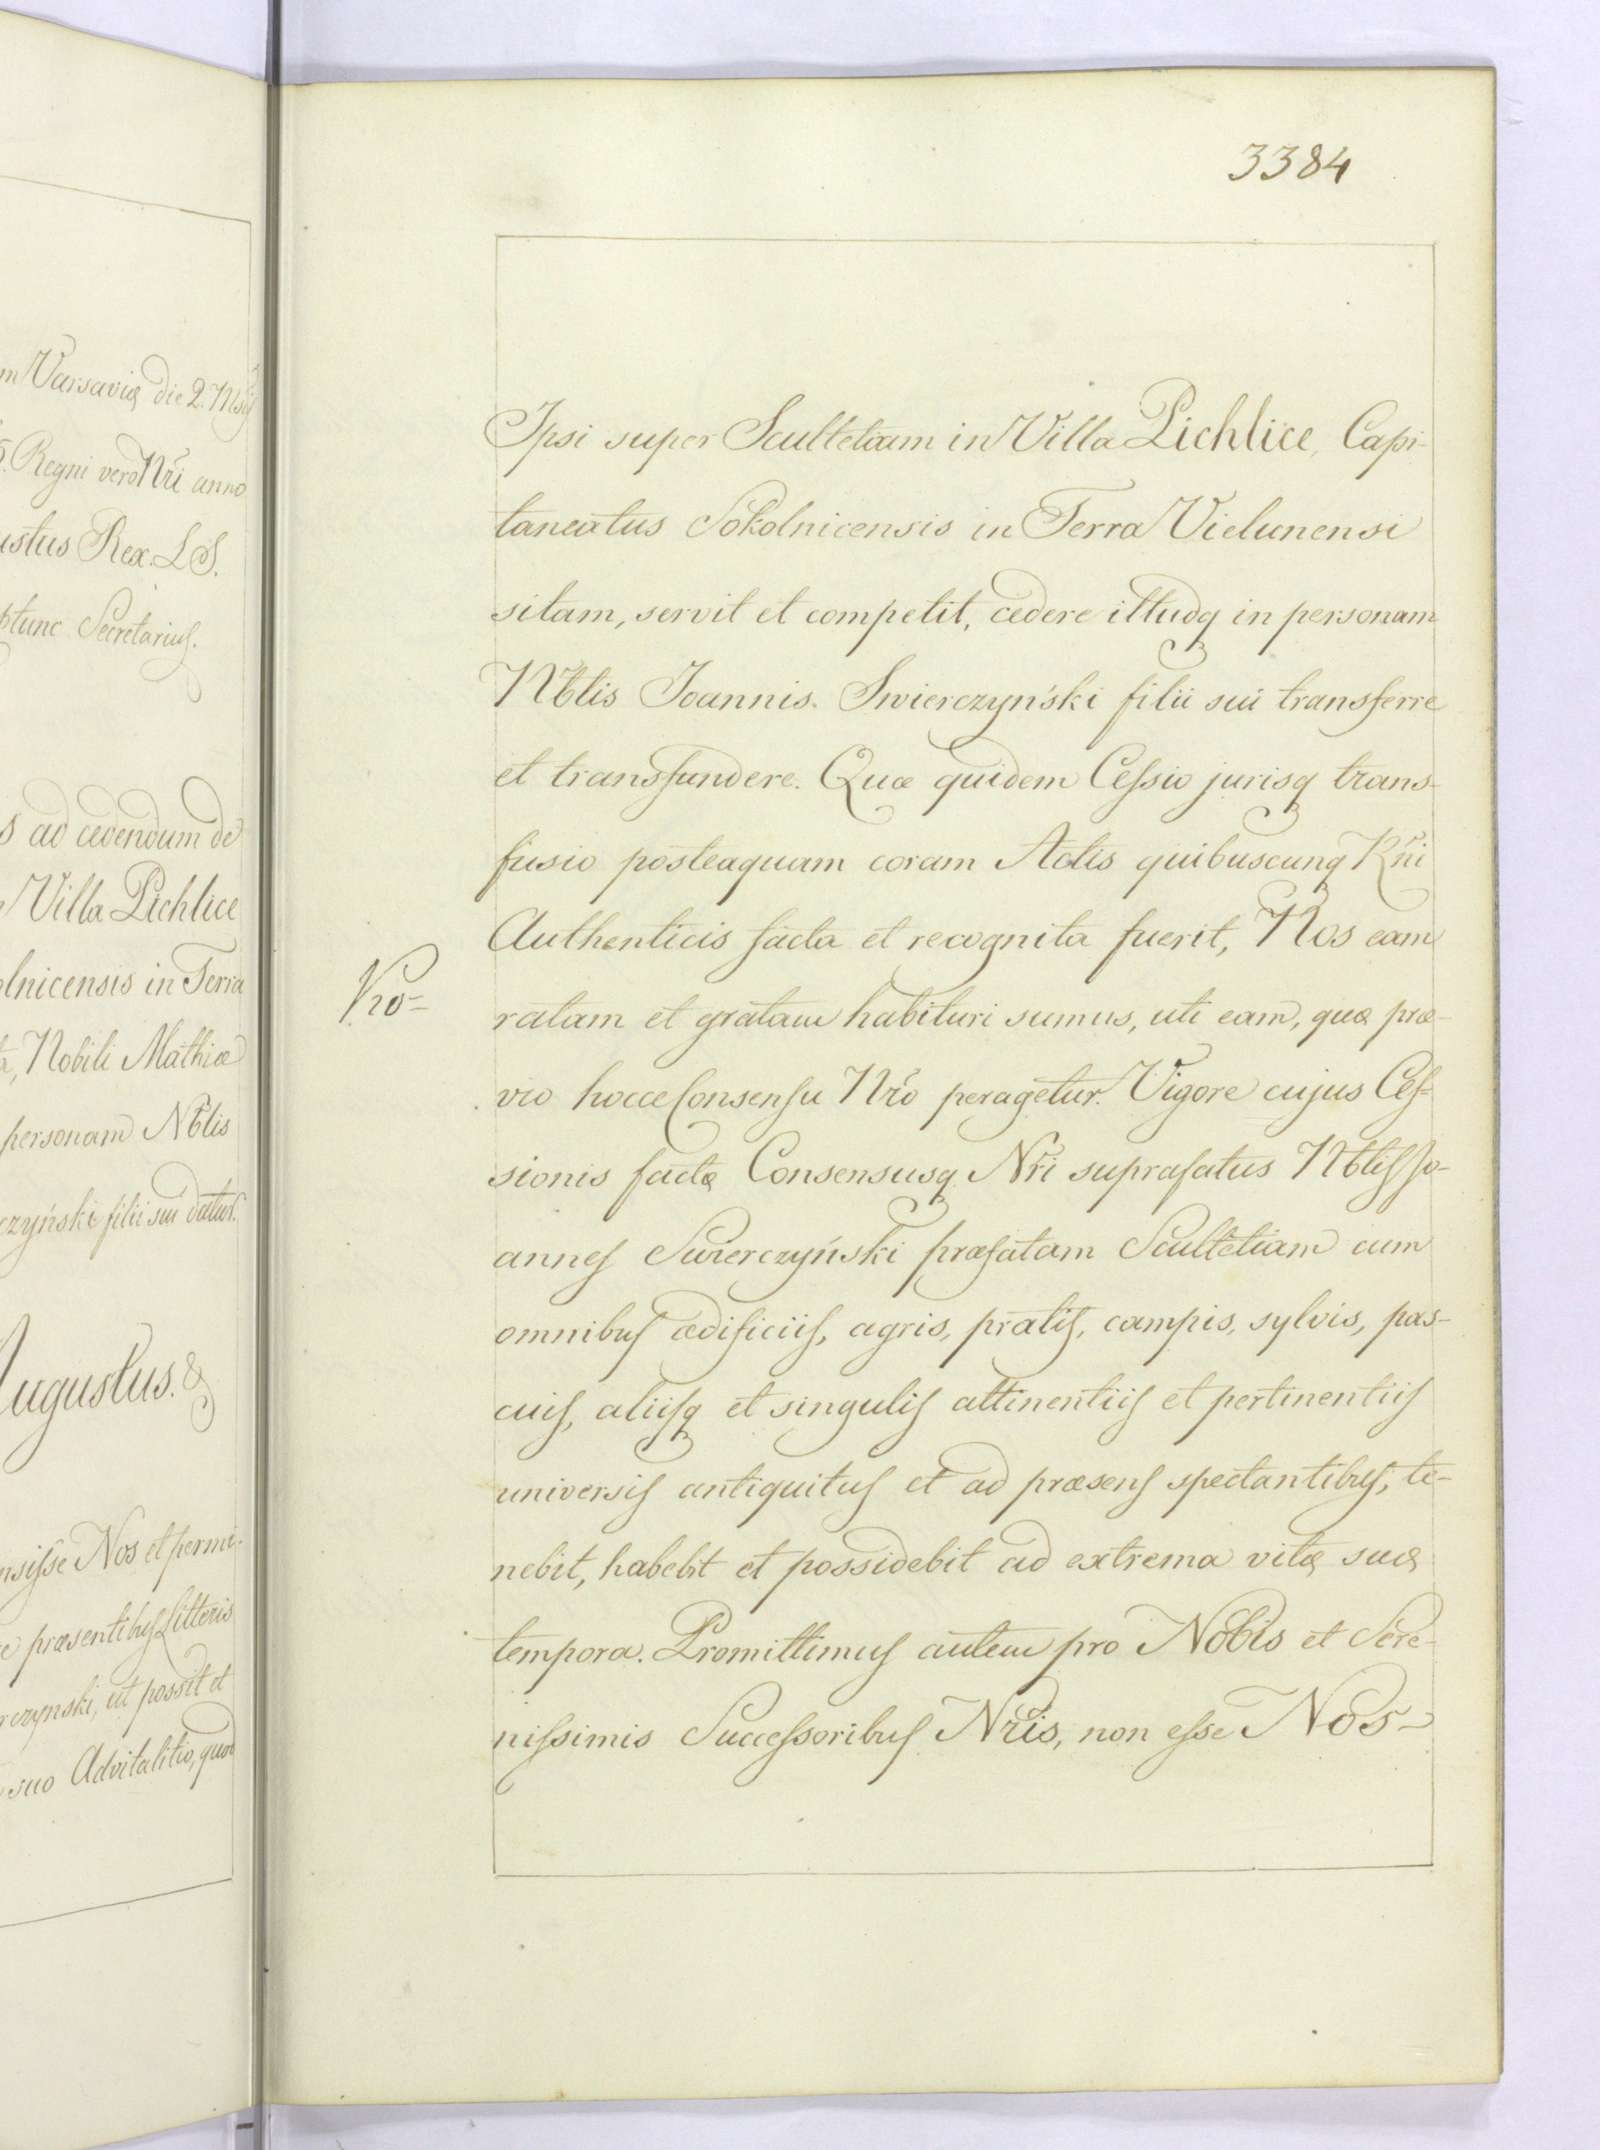 m Varsaviæ die 2. Msis
5. Regni vero Nri anno
ustus Rex. L.S.
ptunc Secretarius.
s ad cedendum de
Villa Pichlice
olnicensis in Terra
a, Nobili Mathiæ
personam Nblis
czyński filii sui datus.
Augustus. &
nsisse Nos et permi-
e præsentibus Litteris
rczynski, ut possit et
suo Advitalitio, quod
3384
Ipsi super Scultetiam in Villa Pichlice, Capi-
taneatus Sokolnicensis in Terra Vielunensi
sitam, servit et competit, cedere illudq in personam
Nblis Joannis. Swierczyński filii sui transferre
et transfundere. Quæ quidem Cessio jurisq trans-
fusio posteaquam coram Actis quibuscunq Rni
Authenticis facta et recognita fuerit, Nos eam
ratam et gratam habituri sumus, uti eam, quæ præ-
vio hocce Consensu Nro peragetur. Vigore cujus Ces-
sionis factæ Consensusq Nri suprafatus Nblis Jo-
annes Swierczyński præfatam Scultetiam cum
omnibus ædificiis, agris, pratis, campis, sylvis, pas-
cuis, aliisq et singulis attinentiis et pertinentiis
universis antiquitus et ad præsens spectantibus, te-
nebit, habebit et possidebit ad extrema vitæ suæ
tempora. Promittimus autem pro Nobis et Sere-
nissimis Successoribus Nris, non esse Nos-